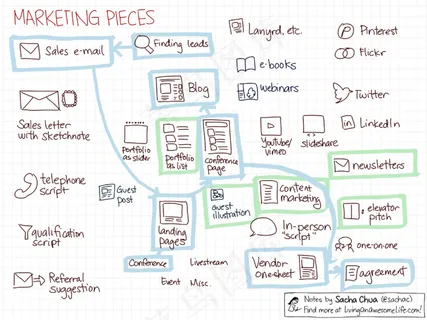 MARKETING PIECES
Sales e-mail
Finding leads
Lanyrd, etc.
Pinterest
Flickr
Blog
e-books
webinars
Twitter
Sales letter
with sketchnote
portfolio
as slider
portfolio
as list
conference
page
YouTube/
vimeo
slideshare
LinkedIn
newsletters
telephone
script
Guest
post
guest
illustration
content
marketing
elevator
pitch
qualification
script
landing
pages
In-person
"script"
one-on-one
Conference
Livestream
Vendor
one-sheet
agreement
Referral
suggestion
Event
Misc.
Notes by Sacha Chua (@sachac)
Find more at livinganawesomelife.com!